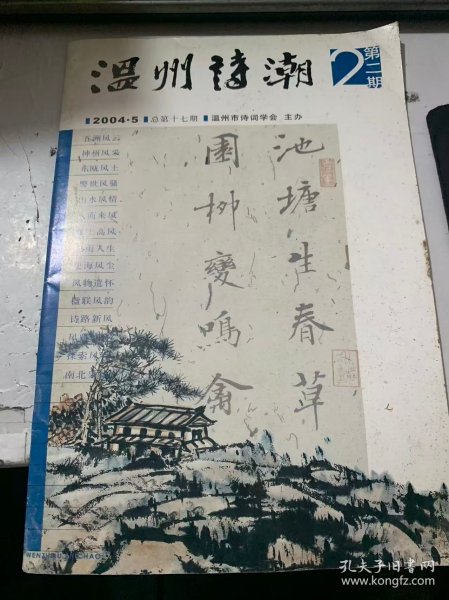 溫州詩潮
2
第二期
2004·5 总第十七期 温州市诗词学会 主办
五洲风云
神州风采
东瓯风土
警世风骚
山水风情
高风
人生
海风尘
风物遣怀
楹联风韵
诗路新风
探索风
南北
池塘生春草
園柳變鳴禽
WENZHOU SHICHAO
孔夫子旧书网
www.kongfz.com